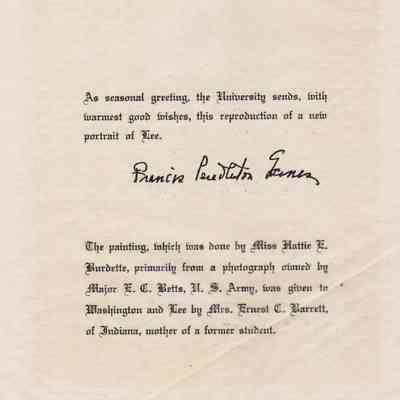 As seasonal greeting, the University sends, with
warmest good wishes, this reproduction of a new
portrait of Lee.
Francis Pendleton Gaines
The painting, which was done by Miss Hattie E.
Burdette, primarily from a photograph owned by
Major E. C. Betts, U. S. Army, was given to
Washington and Lee by Mrs. Ernest C. Barrett,
of Indiana, mother of a former student.